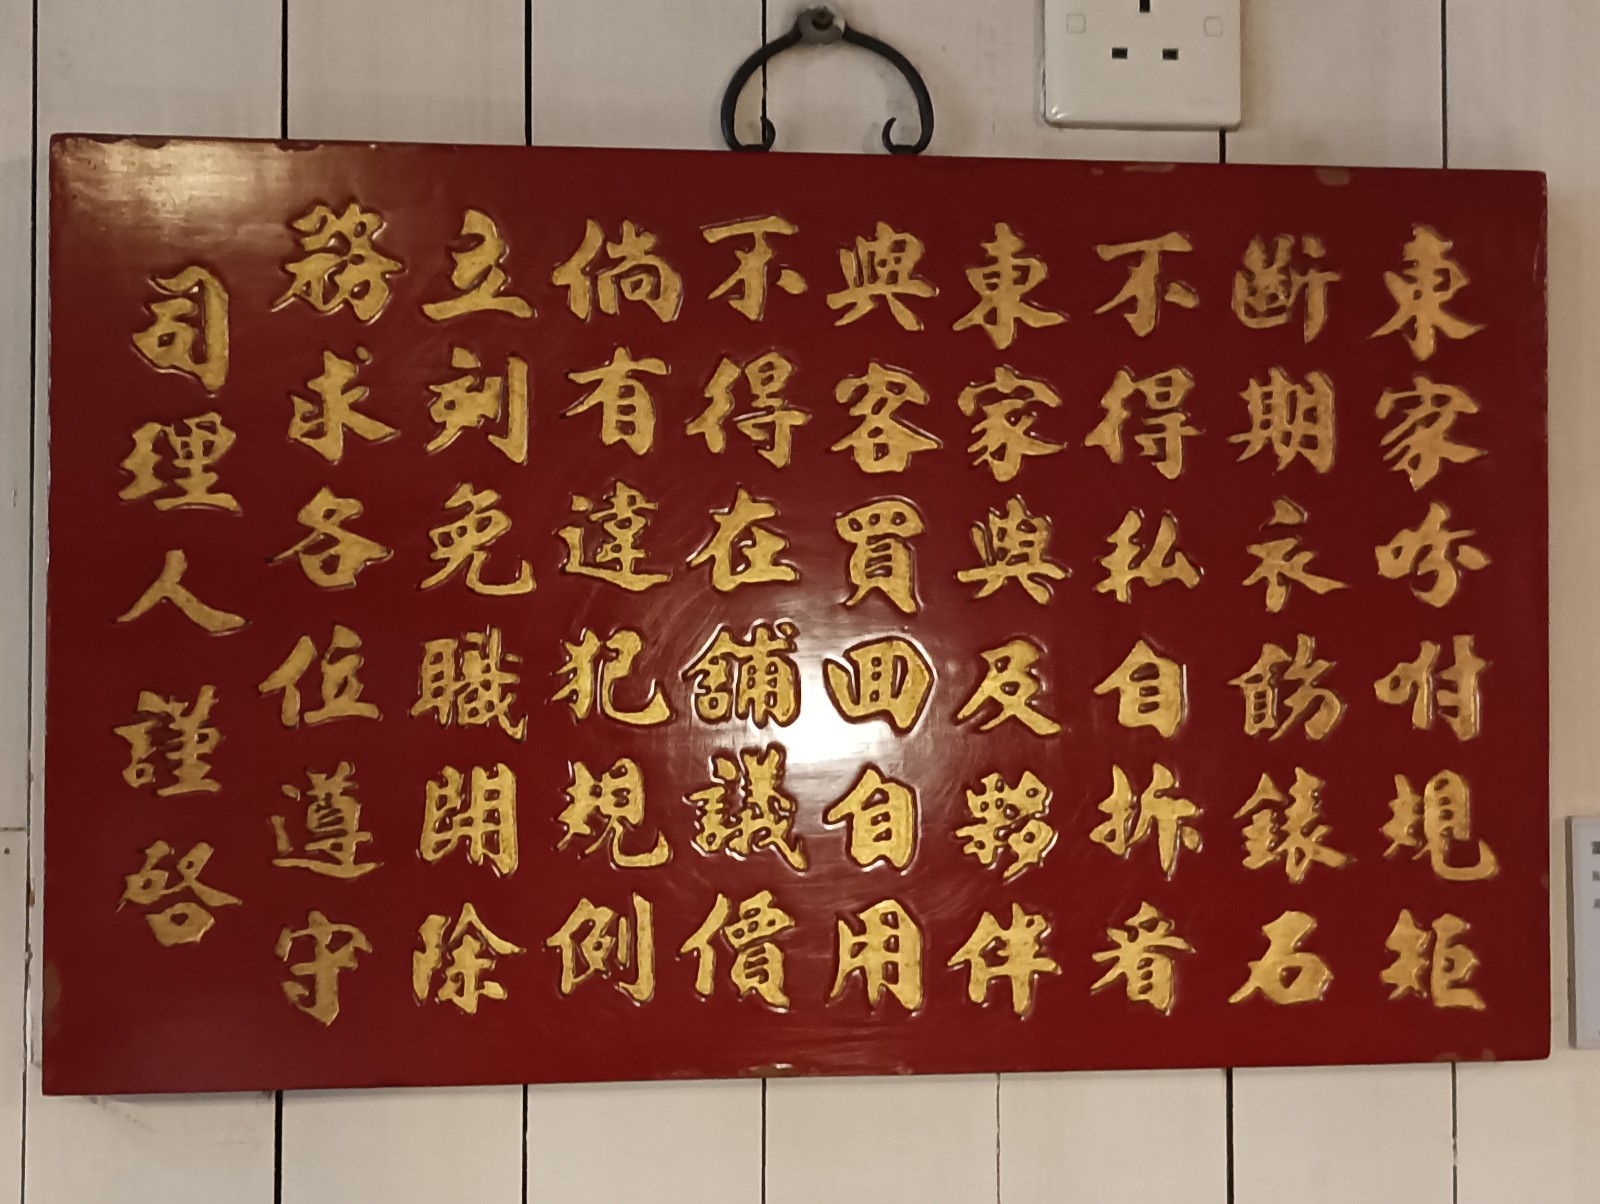 東家吩咐規矩
斷期衣飭錶石
不得私自拆看
東家與及夥伴
與客買回自用
不得在舖議價
倘有違犯規例
立刻免職開除
務求各位遵守
司理人謹啓